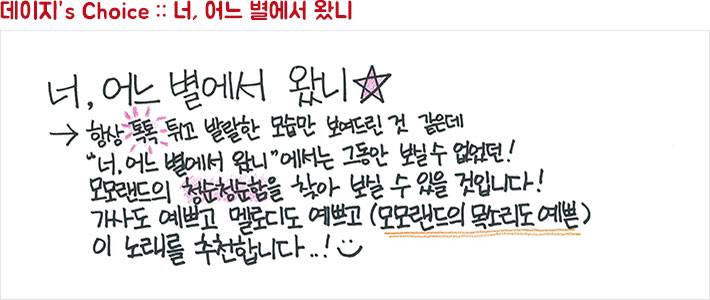 데이지's Choice :: 너, 어느 별에서 왔니
너, 어느 별에서 왔니☆
→ 항상 톡톡 튀고 발랄한 모습만 보여드린 것 같은데
"너, 어느 별에서 왔니"에서는 그동안 보실 수 없었던!
모모랜드의 청순청순함을 찾아 보실 수 있을 것입니다!
가사도 예쁘고 멜로디도 예쁘고 (모모랜드의 목소리도 예쁜)
이 노래를 추천합니다..!